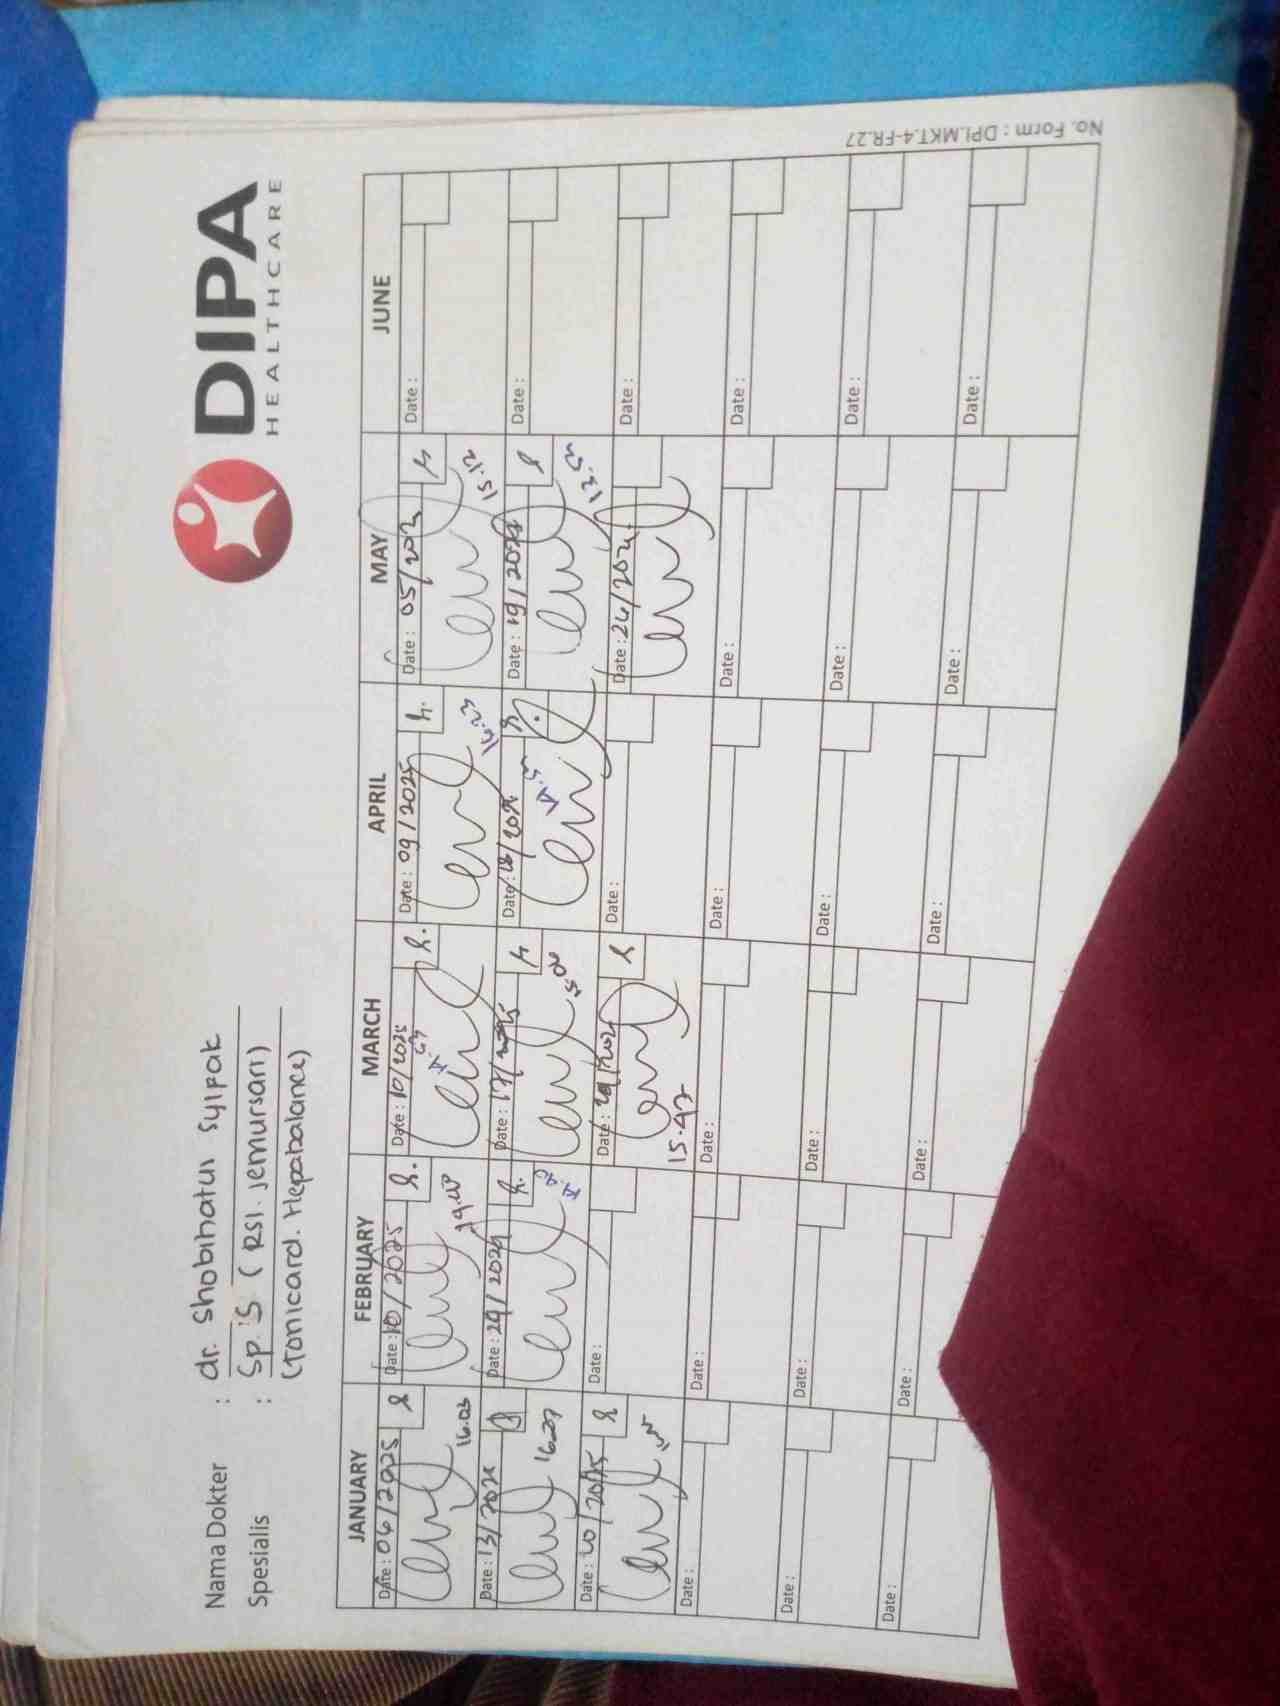 DIPA
HEALTHCARE
Nama Dokter : dr. Shobihatus Syifak
Spesialis : Sp. S ( RSI. Jemursari)
(Tonicard. Hepabalance)
JANUARY FEBRUARY MARCH APRIL MAY JUNE
Date : 06/2025 Date : 10/2025 Date : 10/2025 Date : 09/2025 Date : 05/202 Date :
16.03 16.23 15.12
Date : 13/202 Date : Date : 17/2025 Date : Date : 19/202 Date :
16.27
Date : 20/2025 Date : Date : Date : Date : 26/202 Date :
15.47
Date : Date : Date : Date : Date : Date :
Date : Date : Date : Date : Date : Date :
Date : Date : Date : Date : Date : Date :
No. Form : DPI.MKT.4-FR.27